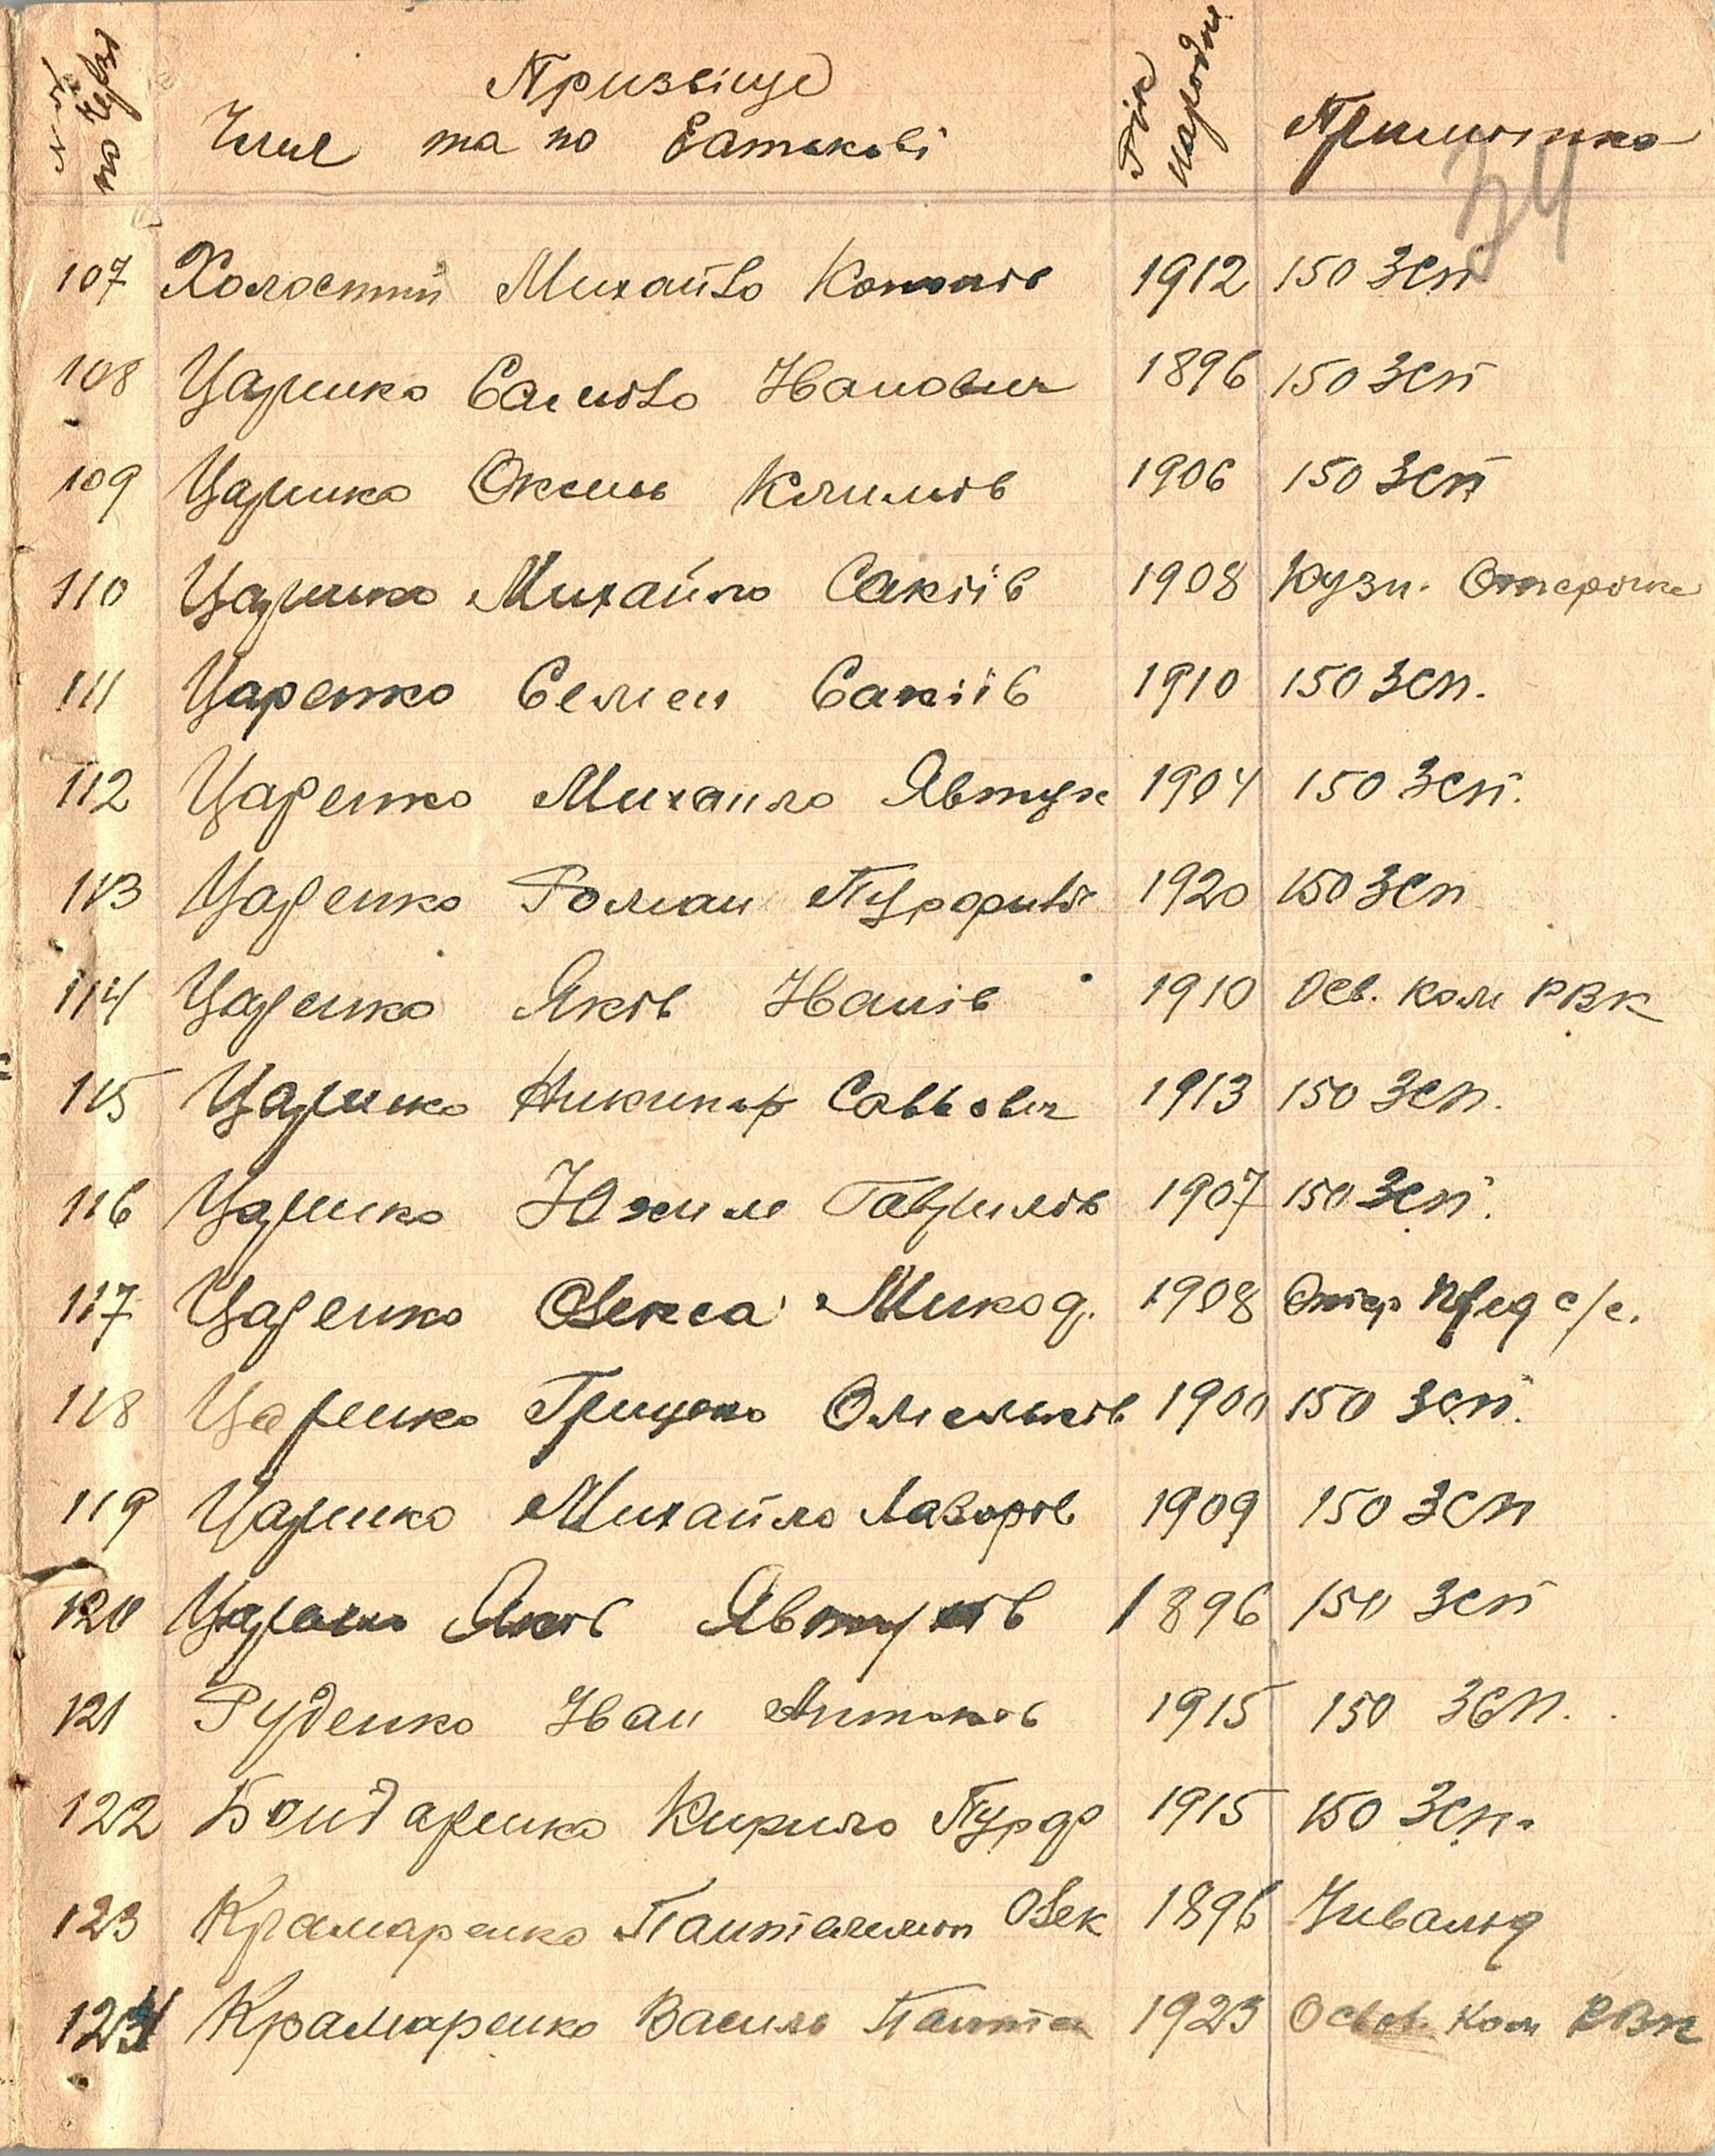 № по черзі
Призвіще
Імя та по батькові
Рік народж
Примітка
34
107 Холостий Михайло Кононів 1912 150 Зсп
108 Царенко Самійло Іванович 1896 150 Зсп
109 Царенко Оксень Климів 1906 150 Зсп
110 Царенко Михайло Сакіїв 1908 Кузн. Отсрочка
111 Царенко Семен Сакіїв 1910 150 Зсп.
112 Царенко Михаило Явтух 1904 150 Зсп.
113 Царенко Роман 1920 150 Зсп
114 Царенко Яків Іванів 1910 Осв. Ком РВК
115 Царенко Никинор Саввович 1913 150 Зсп.
116 Царенко Юхим Гаврилів 1907 150 Зсп.
117 Царенко Олекса Микод. 1908 Отср Пред с/с.
118 Царенко Грицько Омельків 1900 150 Зсп.
119 Царенко Михайло Лазорів 1909 150 Зсп
120 Царенко Яків Явтухів 1896 150 Зсп
121 Руденко Іван Антонов 1915 150 Зсп.
122 Бондаренко Кирило Пурф 1915 150 Зсп.
123 Крамаренко Панталимон Олек 1896 Інвалід
124 Крамаренко Василь Пантел 1923 Освоб. Ком РВК